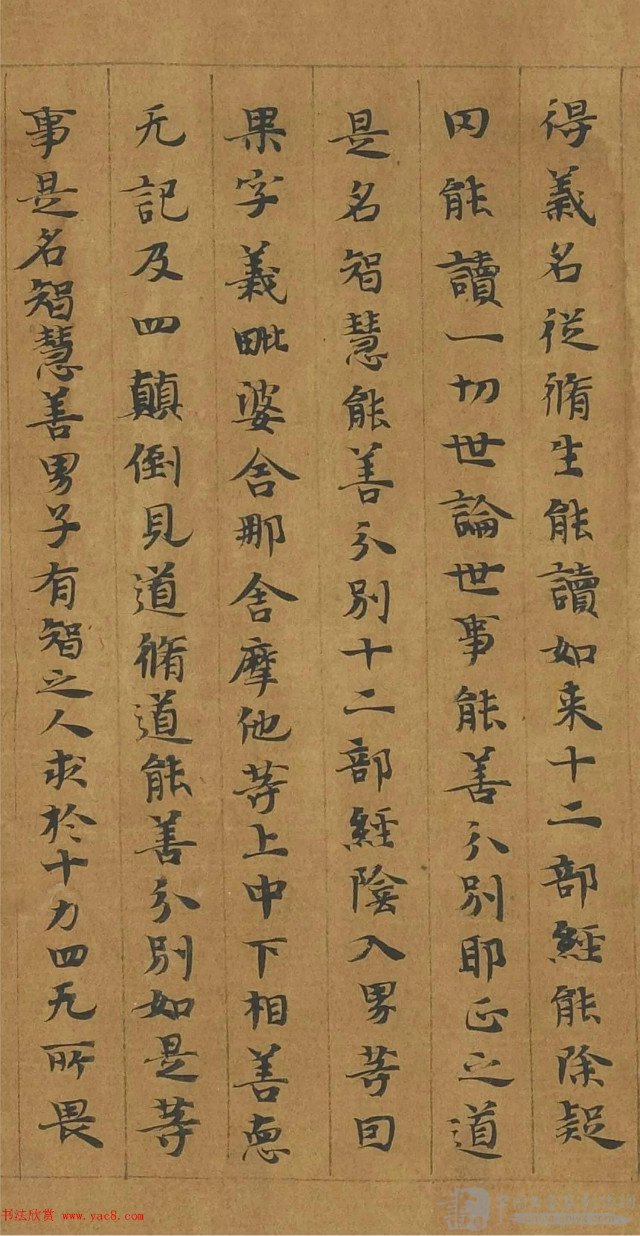 得義名從脩生能讀如来十二部經能除疑
囙能讀一切世論世事能善分別耶正之道
是名智慧能善分別十二部經陰入界等囙
果字義毗婆舍那舍摩他等上中下相善惡
无記及四顛倒見道脩道能善分別如是等
事是名智慧善男子有智之人求於十力四无所畏
书法欣赏 www.yac8.com